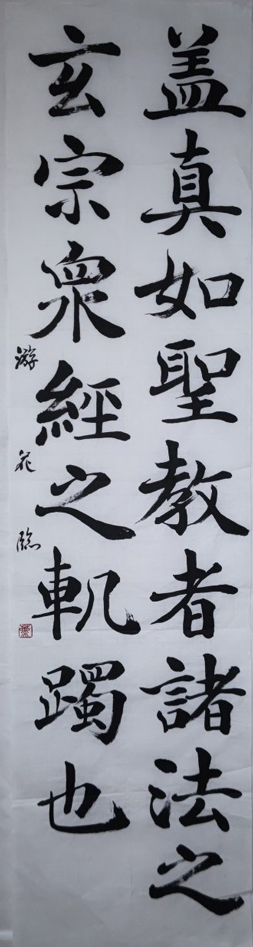 盖真如聖教者諸法之
玄宗衆經之軏躅也
游花臨